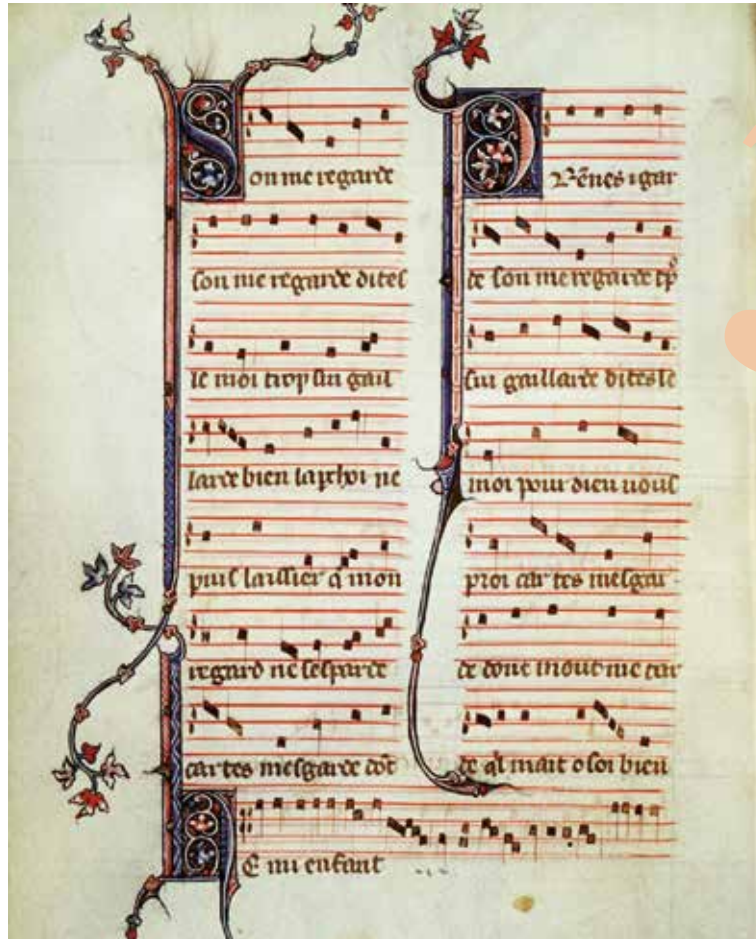 Son me regarde
son me regarde dites
le moi trop sui gail
larde bien laperchoi ne
puis laissier q mon
regard ne sesparde
car tes mesgarde dōt
Prēnes i gar
de son me regarde tp
sui gaillarde dites le
moi pour dieu uous
proi car tes mesgar
de dont mout me tar
de ql mait o soi bien
E mi enfant